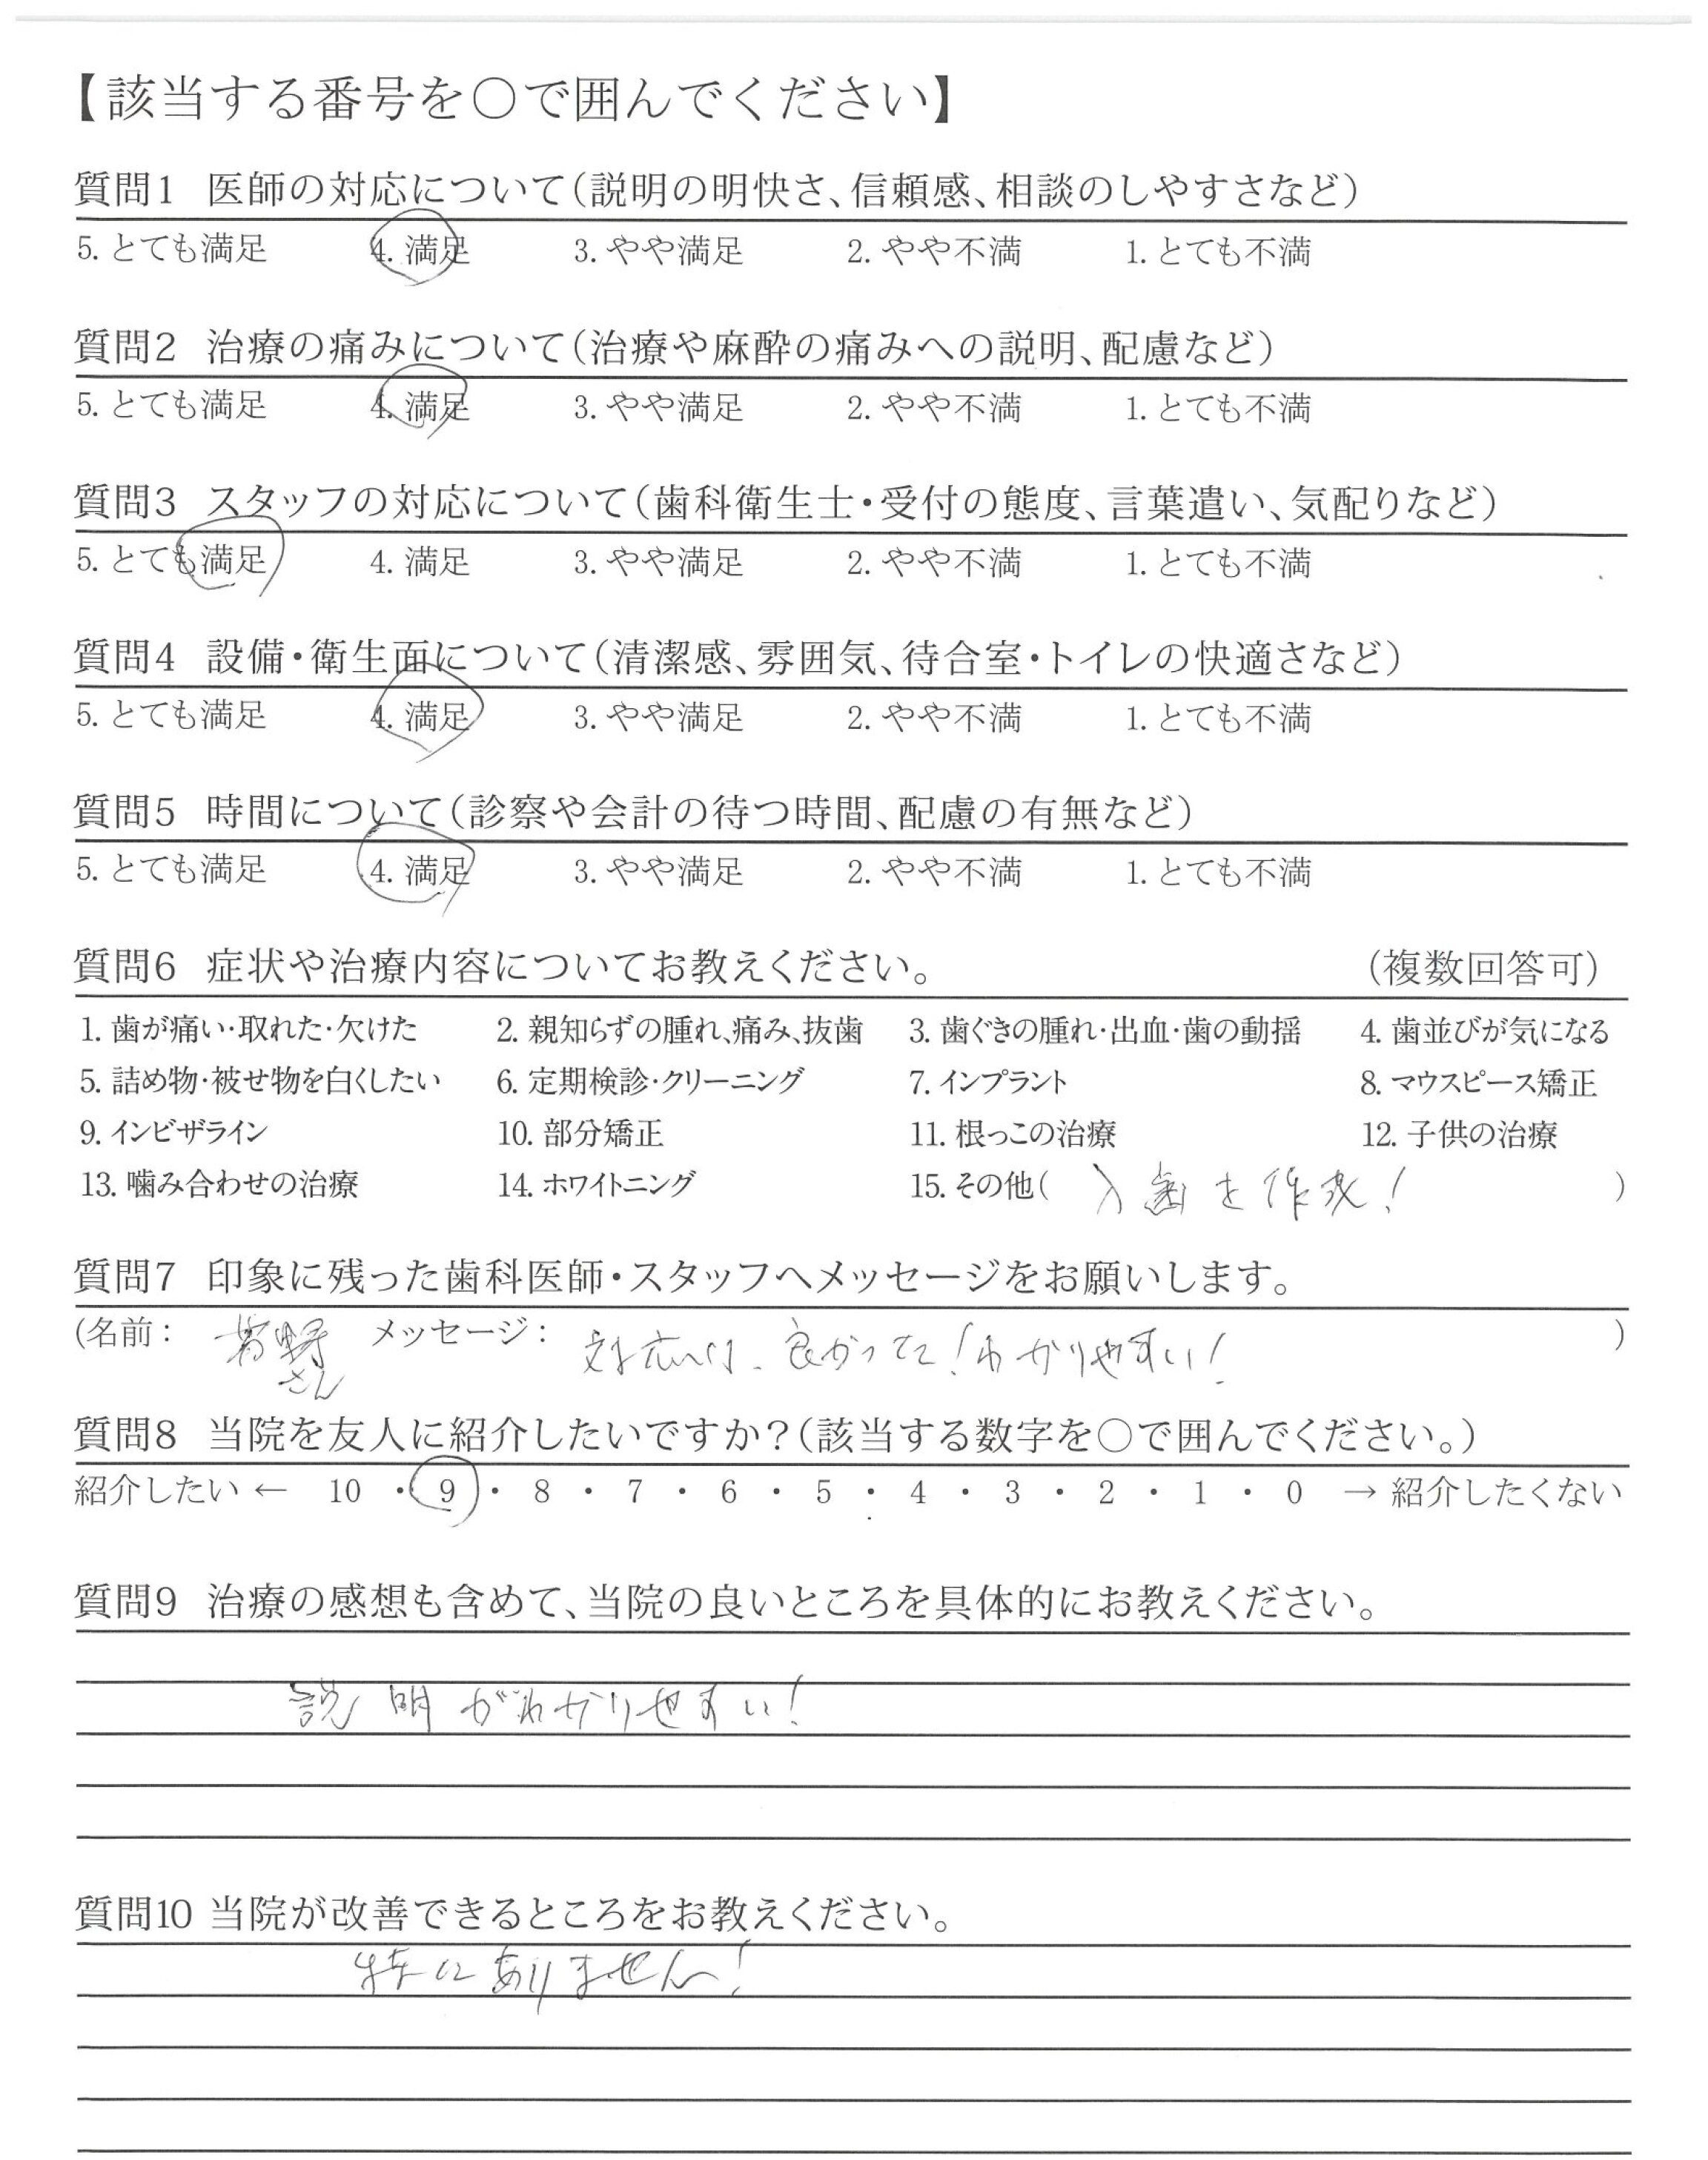 【該当する番号を○で囲んでください】
質問1 医師の対応について(説明の明快さ、信頼感、相談のしやすさなど)
5. とても満足 4. 満足 3. やや満足 2. やや不満 1. とても不満
質問2 治療の痛みについて(治療や麻酔の痛みへの説明、配慮など)
5. とても満足 4. 満足 3. やや満足 2. やや不満 1. とても不満
質問3 スタッフの対応について(歯科衛生士・受付の態度、言葉遣い、気配りなど)
5. とても満足 4. 満足 3. やや満足 2. やや不満 1. とても不満
質問4 設備・衛生面について(清潔感、雰囲気、待合室・トイレの快適さなど)
5. とても満足 4. 満足 3. やや満足 2. やや不満 1. とても不満
質問5 時間について(診察や会計の待つ時間、配慮の有無など)
5. とても満足 4. 満足 3. やや満足 2. やや不満 1. とても不満
質問6 症状や治療内容についてお教えください。 (複数回答可)
1. 歯が痛い・取れた・欠けた 2. 親知らずの腫れ、痛み、抜歯 3. 歯ぐきの腫れ・出血・歯の動揺 4. 歯並びが気になる
5. 詰め物・被せ物を白くしたい 6. 定期検診・クリーニング 7. インプラント 8. マウスピース矯正
9. インビザライン 10. 部分矯正 11. 根っこの治療 12. 子供の治療
13. 噛み合わせの治療 14. ホワイトニング 15. その他( 入歯を作成! )
質問7 印象に残った歯科医師・スタッフへメッセージをお願いします。
(名前: さん メッセージ: 対応は、良かったです!わかりやすい! )
質問8 当院を友人に紹介したいですか?(該当する数字を○で囲んでください。)
紹介したい ← 10 ・ 9 ・ 8 ・ 7 ・ 6 ・ 5 ・ 4 ・ 3 ・ 2 ・ 1 ・ 0 → 紹介したくない
質問9 治療の感想も含めて、当院の良いところを具体的にお教えください。
説明がわかりやすい!
質問10 当院が改善できるところをお教えください。
特にありません!